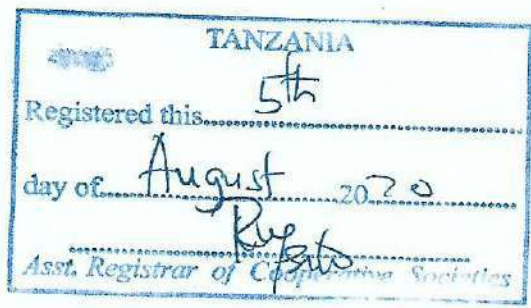 TANZANIA
Registered this 5th
day of August 2020
Asst. Registrar of Cooperative Societies